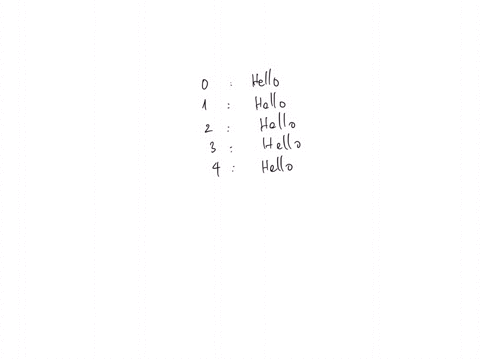 0 : Hello
1 : Hello
2 : Hello
3 : Hello
4 : Hello